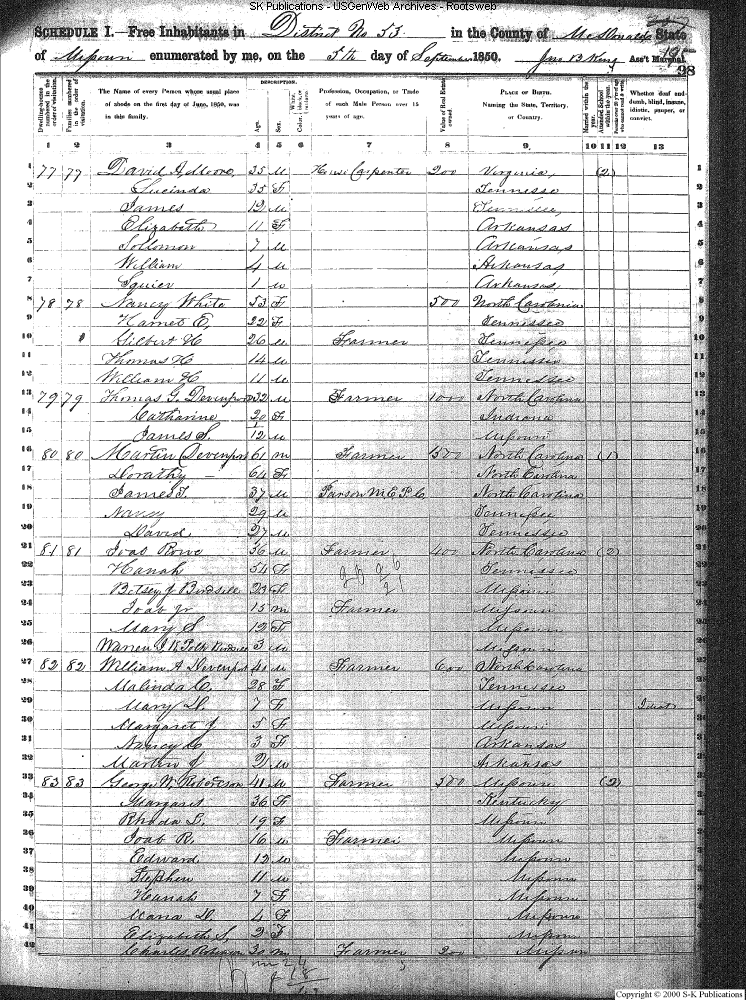 SK Publications - USGenWeb Archives - Rootsweb
SCHEDULE I.—Free Inhabitants in District No 53 in the County of McDonald State
of Missouri enumerated by me, on the 5th day of September 1850. Jno B King Ass't Marshal.
195
98
Dwelling-houses numbered in the order of visitation.
Families numbered in the order of visitation.
The Name of every Person whose usual place of abode on the first day of June, 1850, was in this family.
DESCRIPTION.
Age.
Sex.
Color, White, black or mulatto.
Profession, Occupation, or Trade of each Male Person over 15 years of age.
Value of Real Estate owned.
PLACE OF BIRTH. Naming the State, Territory, or Country.
Married within the year.
Attended School within the year.
Persons over 20 y'rs of age who cannot read & write.
Whether deaf and dumb, blind, insane, idiotic, pauper, or convict.
1 2 3 4 5 6 7 8 9 10 11 12 13
1 77 77 David A Moore 35 M House Carpenter 200 Virginia (2) 1
2 Lucinda 35 F Tennessee 2
3 James 12 M Tennessee 3
4 Elizabeth 11 F Arkansas 4
5 Sollomon 7 M Arkansas 5
6 William 4 M Arkansas 6
7 Squier 1 M Arkansas 7
8 78 78 Nancy White 53 F 500 North Carolonia 8
9 Harriet E, 22 F Tennessee 9
10 Gilbert H 26 M Farmer Tennessee 10
11 Thomas H 14 M Tennessee 11
12 William H 11 M Tennessee 12
13 79 79 Thomas G. Devenport 32 M Farmer 1000 North Carolina 13
14 Catharine 20 F Indiana 14
15 James S. 1/12 M Missouri 15
16 80 80 Martin Devenport 61 M Farmer 500 North Carolina (1) 16
17 Dorathy 64 F North Carolina 17
18 James T. 37 M Parson M.E.P.C. North Carolina 18
19 Nancy 29 Tennessee 19
20 David 27 M Tennessee 20
21 81 81 Joab Rowe 56 M Farmer 400 North Carolina (2) 21
22 Hanah 54 F Tennessee 22
23 Betsey J Birdsell 23 F Missouri 23
24 Joab Jr 15 M Farmer Missouri 24
25 Mary S 12 F Missouri 25
26 Warren J. K Polk 3 M Missouri 26
27 82 82 William A Devenport 41 M Farmer 600 North Carolina 27
28 Malinda C. 28 F Tennessee 28
29 Mary D. 7 F Missouri Idiot 29
30 Margaret J 5 F Missouri 30
31 Nancy C 3 F Arkansas 31
32 Martin J 2 M Arkansas 32
33 83 83 George W Roberson 41 M Farmer 500 Missouri (2) 33
34 Margaret 36 F Kentucky 34
35 Rhoda E. 19 F Missouri 35
36 Joab R. 16 M Farmer Missouri 36
37 Edward 12 M Missouri 37
38 Stephen 11 M Missouri 38
39 Hanah 7 F Missouri 39
40 D. 4 F Missouri 40
41 Elizabeth S, 2 F Missouri 41
42 Charles 30 M Farmer 200 Missouri 42
Copyright © 2000 S-K Publications